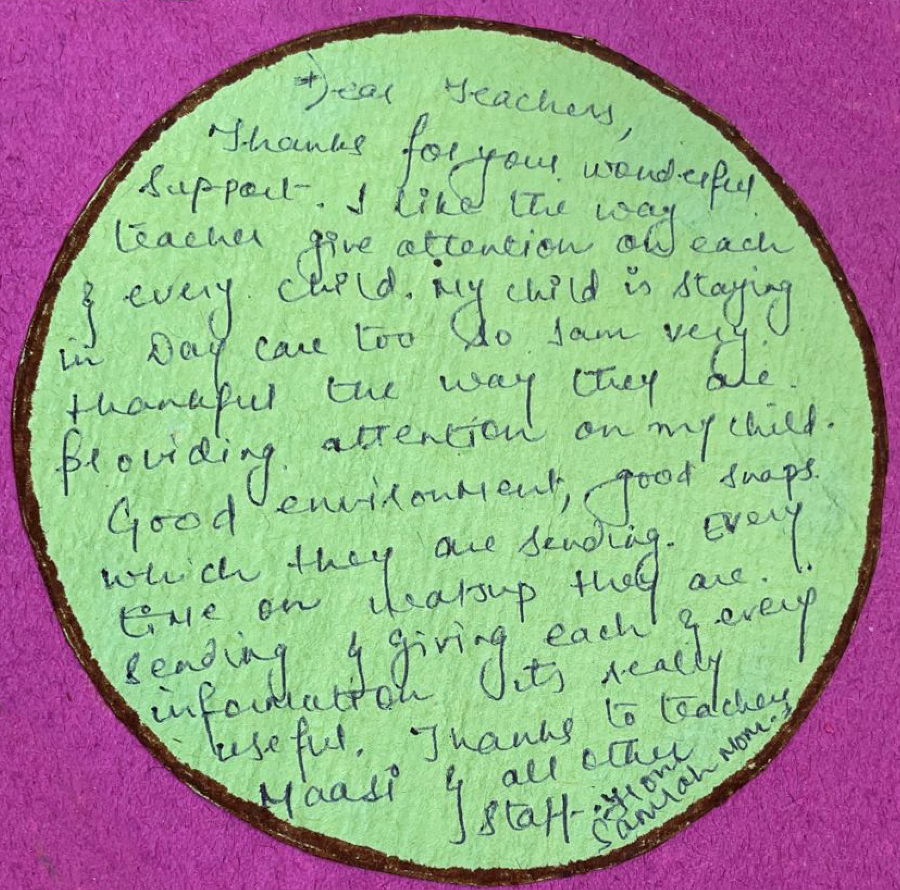 Dear Teachers,
Thanks for your wonderful
support. I like the way
teacher give attention on each
& every child. My child is staying
in Day care too so I am very
thankful the way they are.
Providing. attention on my child.
Good environment, good snaps.
which they are sending. Every
time on whatsup they are..
sending & giving each & every
information its really
useful. Thanks to teachers
Maasi & all other
staff. From
Saniyah Mom.